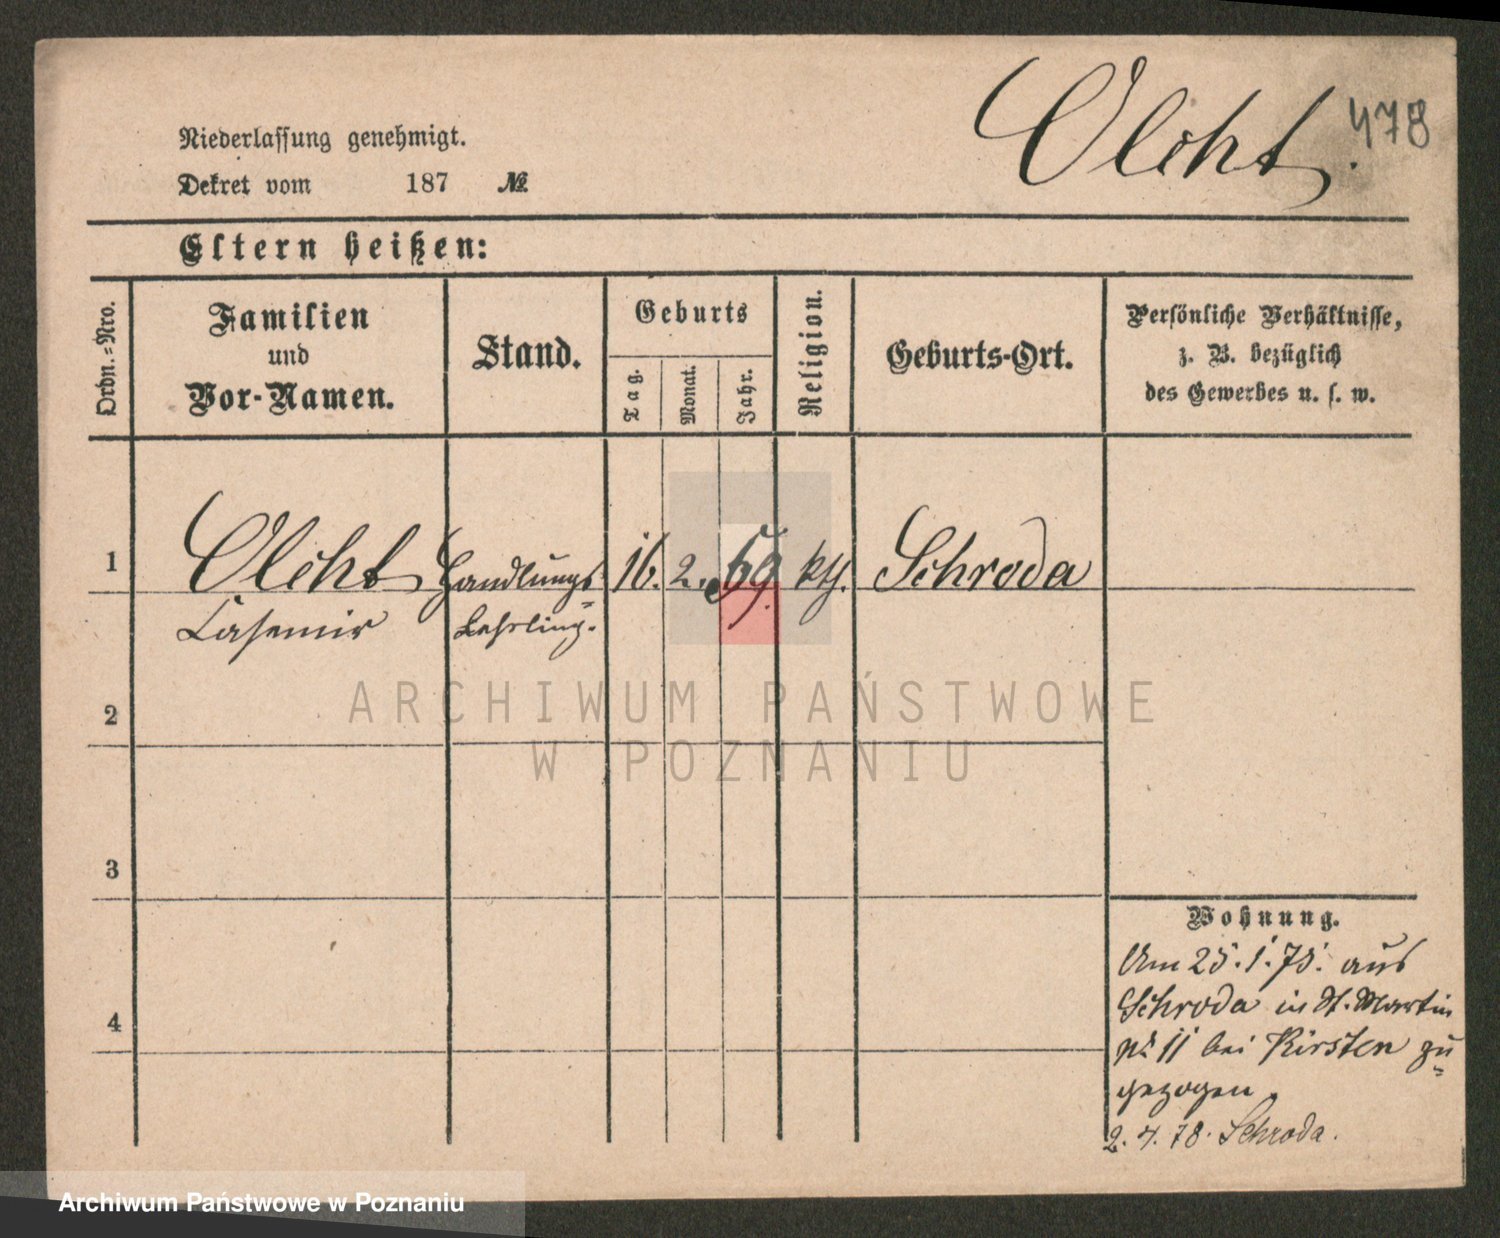 Olcht.
478
Niederlassung genehmigt.
Dekret vom 187 №
Eltern heißen:
Ordn.-Nro.
Familien
und
Vor-Namen.
Stand.
Geburts
Tag.
Monat.
Jahr.
Religion.
Geburts-Ort.
Persönliche Verhältnisse,
z. B. bezüglich
des Gewerbes u. s. w.
1 Olcht Handlungs 16. 2. 59. kth. Schroda
Casemir Lehrling.
2
3
4
Wohnung.
Am 25. 1. 78. aus
Schroda in St. Martin
№ 11 bei Kirsten zu
gezogen.
2. 4. 78. Schroda.
ARCHIWUM PAŃSTWOWE
W POZNANIU
Archiwum Państwowe w Poznaniu